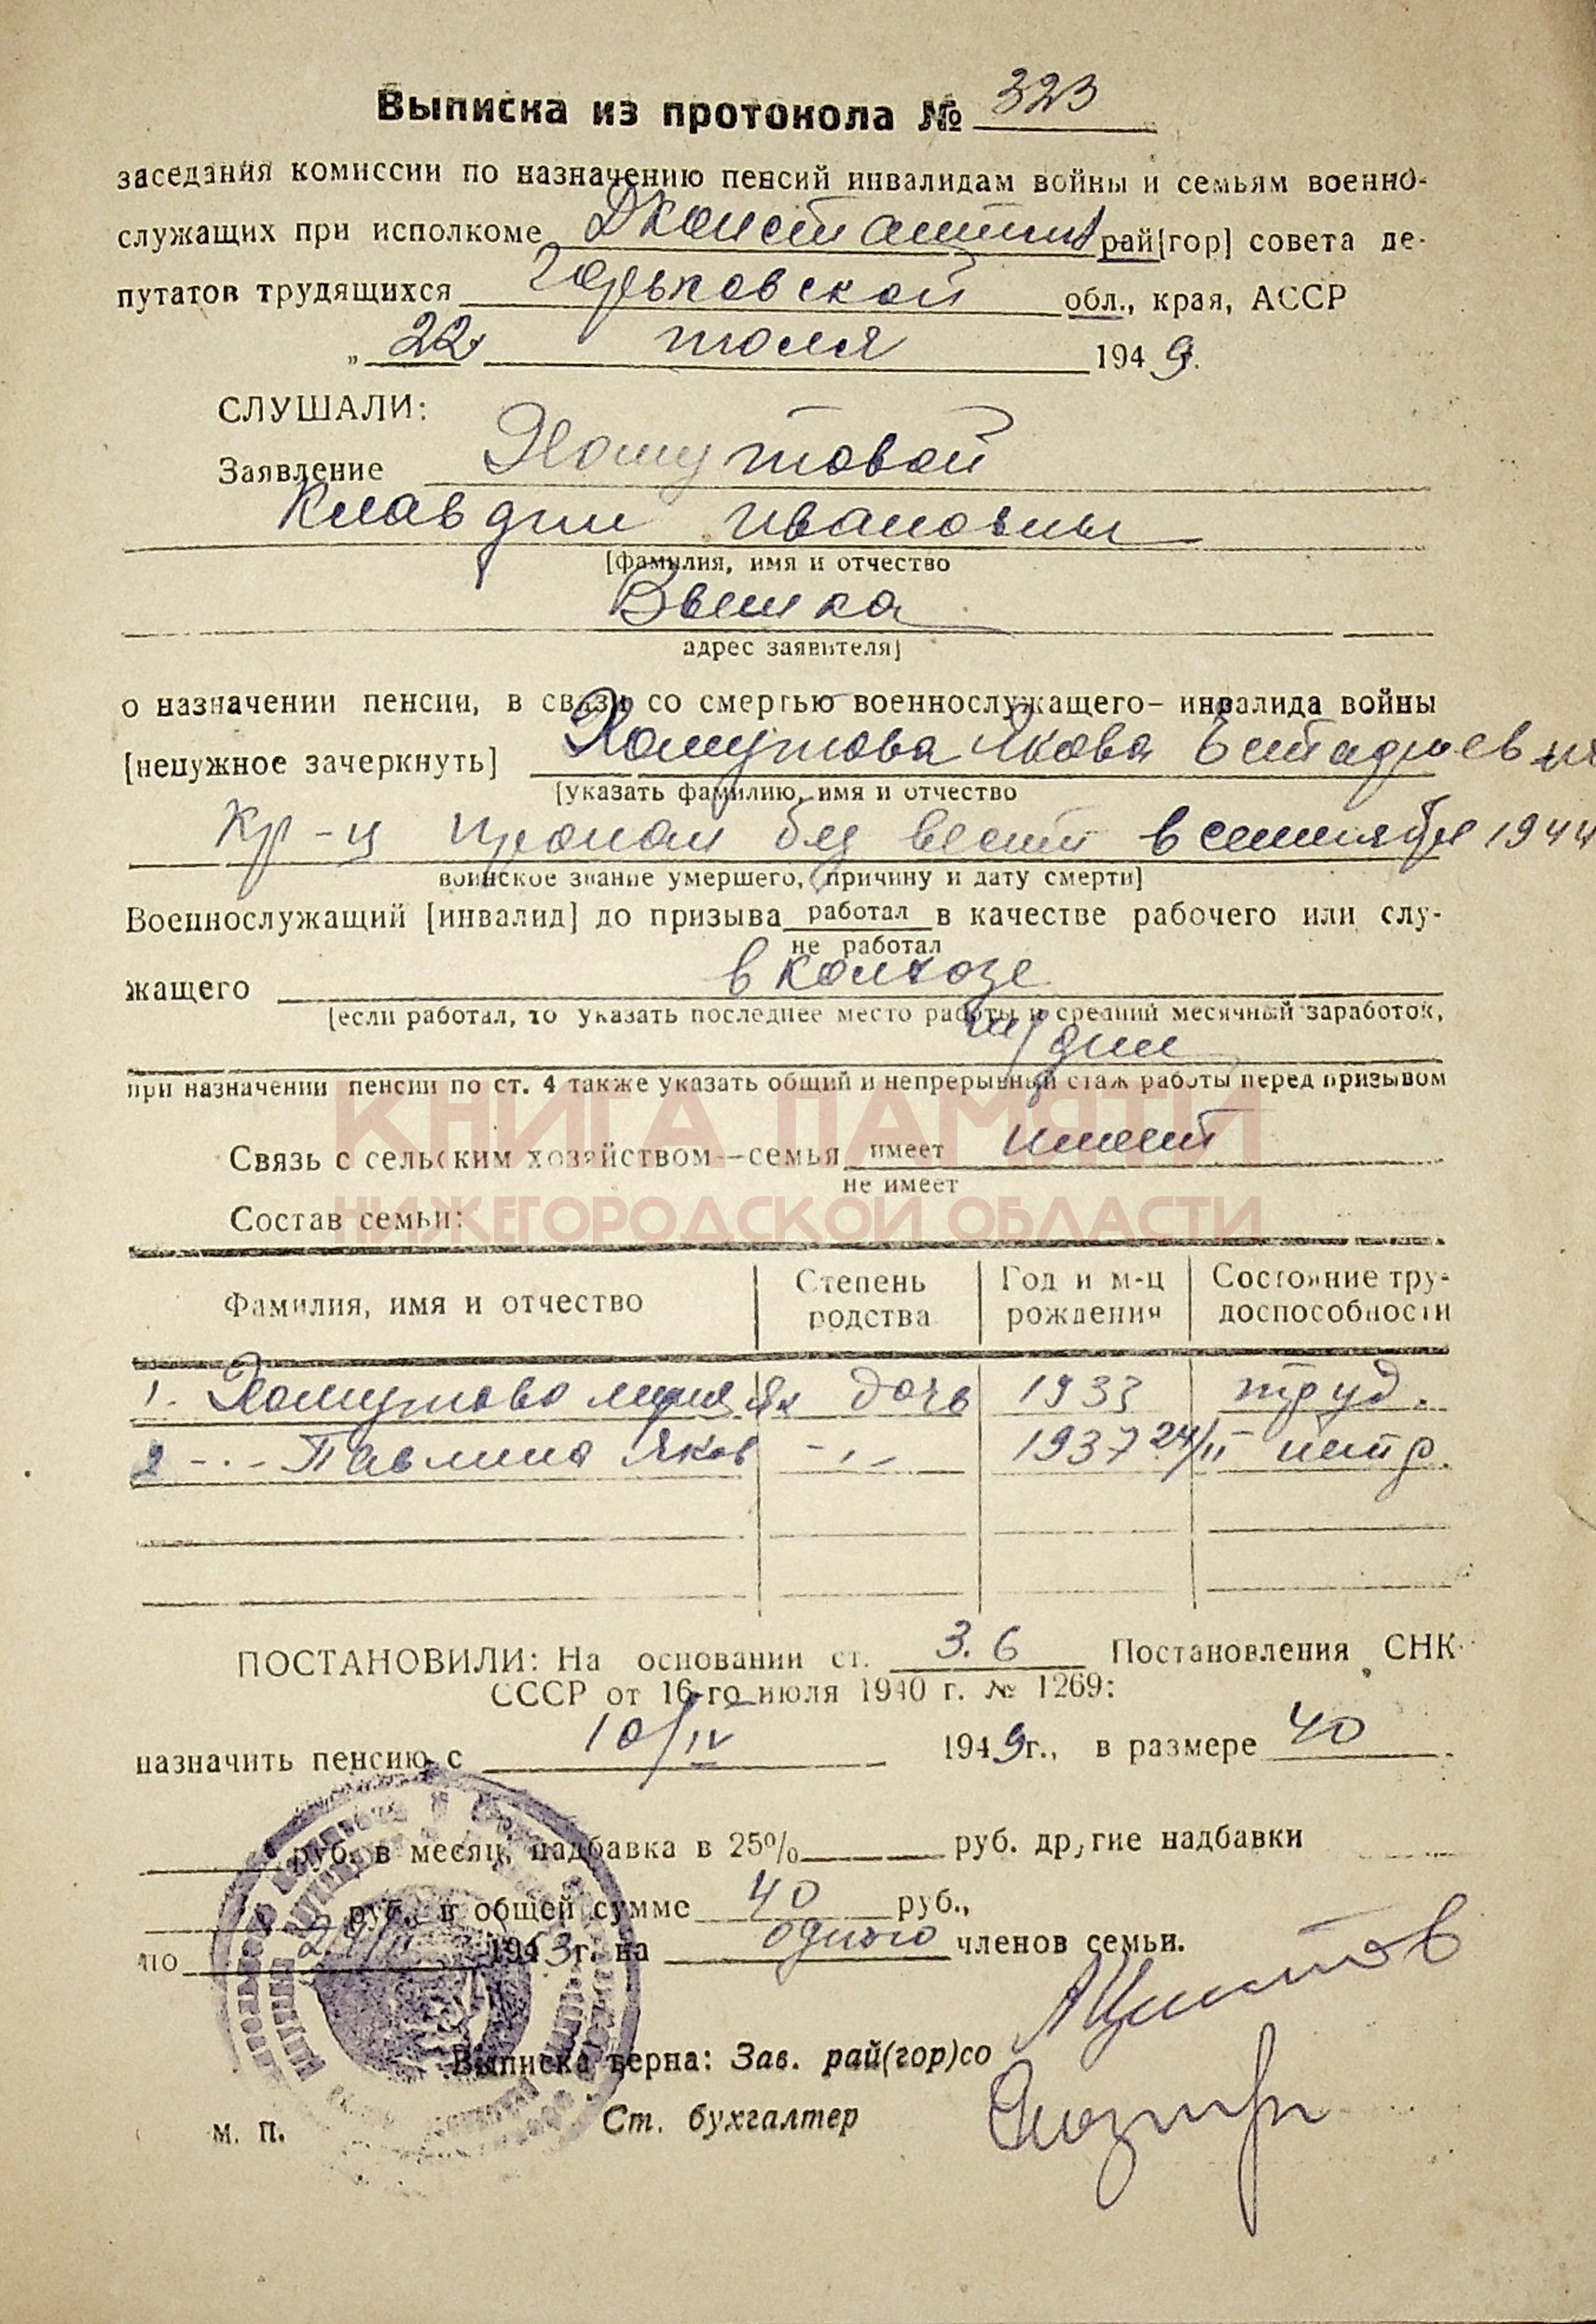 Выписка из протокола № 323
заседания комиссии по назначению пенсий инвалидам войны и семьям военно-
служащих при исполкоме Дконстантин рай[гор] совета де-
путатов трудящихся Горьковской обл., края, АССР
„ 22 июля 1949.
СЛУШАЛИ:
Заявление Хомутовой
Клавдии Ивановны
[фамилия, имя и отчество
адрес заявителя]
о назначении пенсии, в связи со смертью военнослужащего- инвалида войны
[ненужное зачеркнуть] Хомутова Якова
[указать фамилию, имя и отчество
Кр-ц пропал без вести в сентябре 1944
воинское звание умершего, причину и дату смерти]
Военнослужащий [инвалид] до призыва работал в качестве рабочего или слу-
не работал
жащего в колхозе
[если работал, то указать последнее место работы и средний месячный заработок,
тр/дни
при назначении пенсии по ст. 4 также указать общий и непрерывный стаж работы перед призывом
КНИГА ПАМЯТИ
Связь с сельским хозяйством—семья имеет имеет
не имеет
НИЖЕГОРОДСКОЙ ОБЛАСТИ
Состав семьи:
Фамилия, имя и отчество Степень родства Год и м-ц рождения Состояние тру-
доспособности
1. Хомутова Мария Як дочь 1933 труд.
2 -·- Павлина Яков -,,- 1937 24/II нетр.
ПОСТАНОВИЛИ: На основании ст. 3.6 Постановления СНК
СССР от 16-го июля 1940 г. № 1269:
назначить пенсию с 10/IV 1949г., в размере 40
руб. в месяц, надбавка в 25% руб. другие надбавки
руб., в общей сумме 40 руб.,
по 24/II 1953г. на одного членов семьи.
Выписка верна: Зав. рай(гор)со
м. п. Ст. бухгалтер